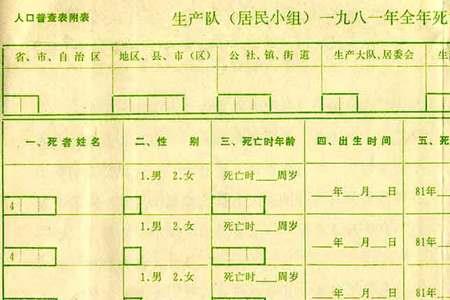 人口普查表附表
生产队（居民小组）一九八一年全年死
省、市、自治区 地区、县、市（区） 公社、镇、街道 生产大队、居委会 生
一、死者姓名 二、性 别 三、死亡时年龄 四、出生时间 五、死
1.男 2.女 死亡时___周岁
___年___月___日 81年
4
1.男 2.女 死亡时___周岁
___年___月___日 81年
4
1.男 2.女 死亡时___周岁
年 月 日 81年